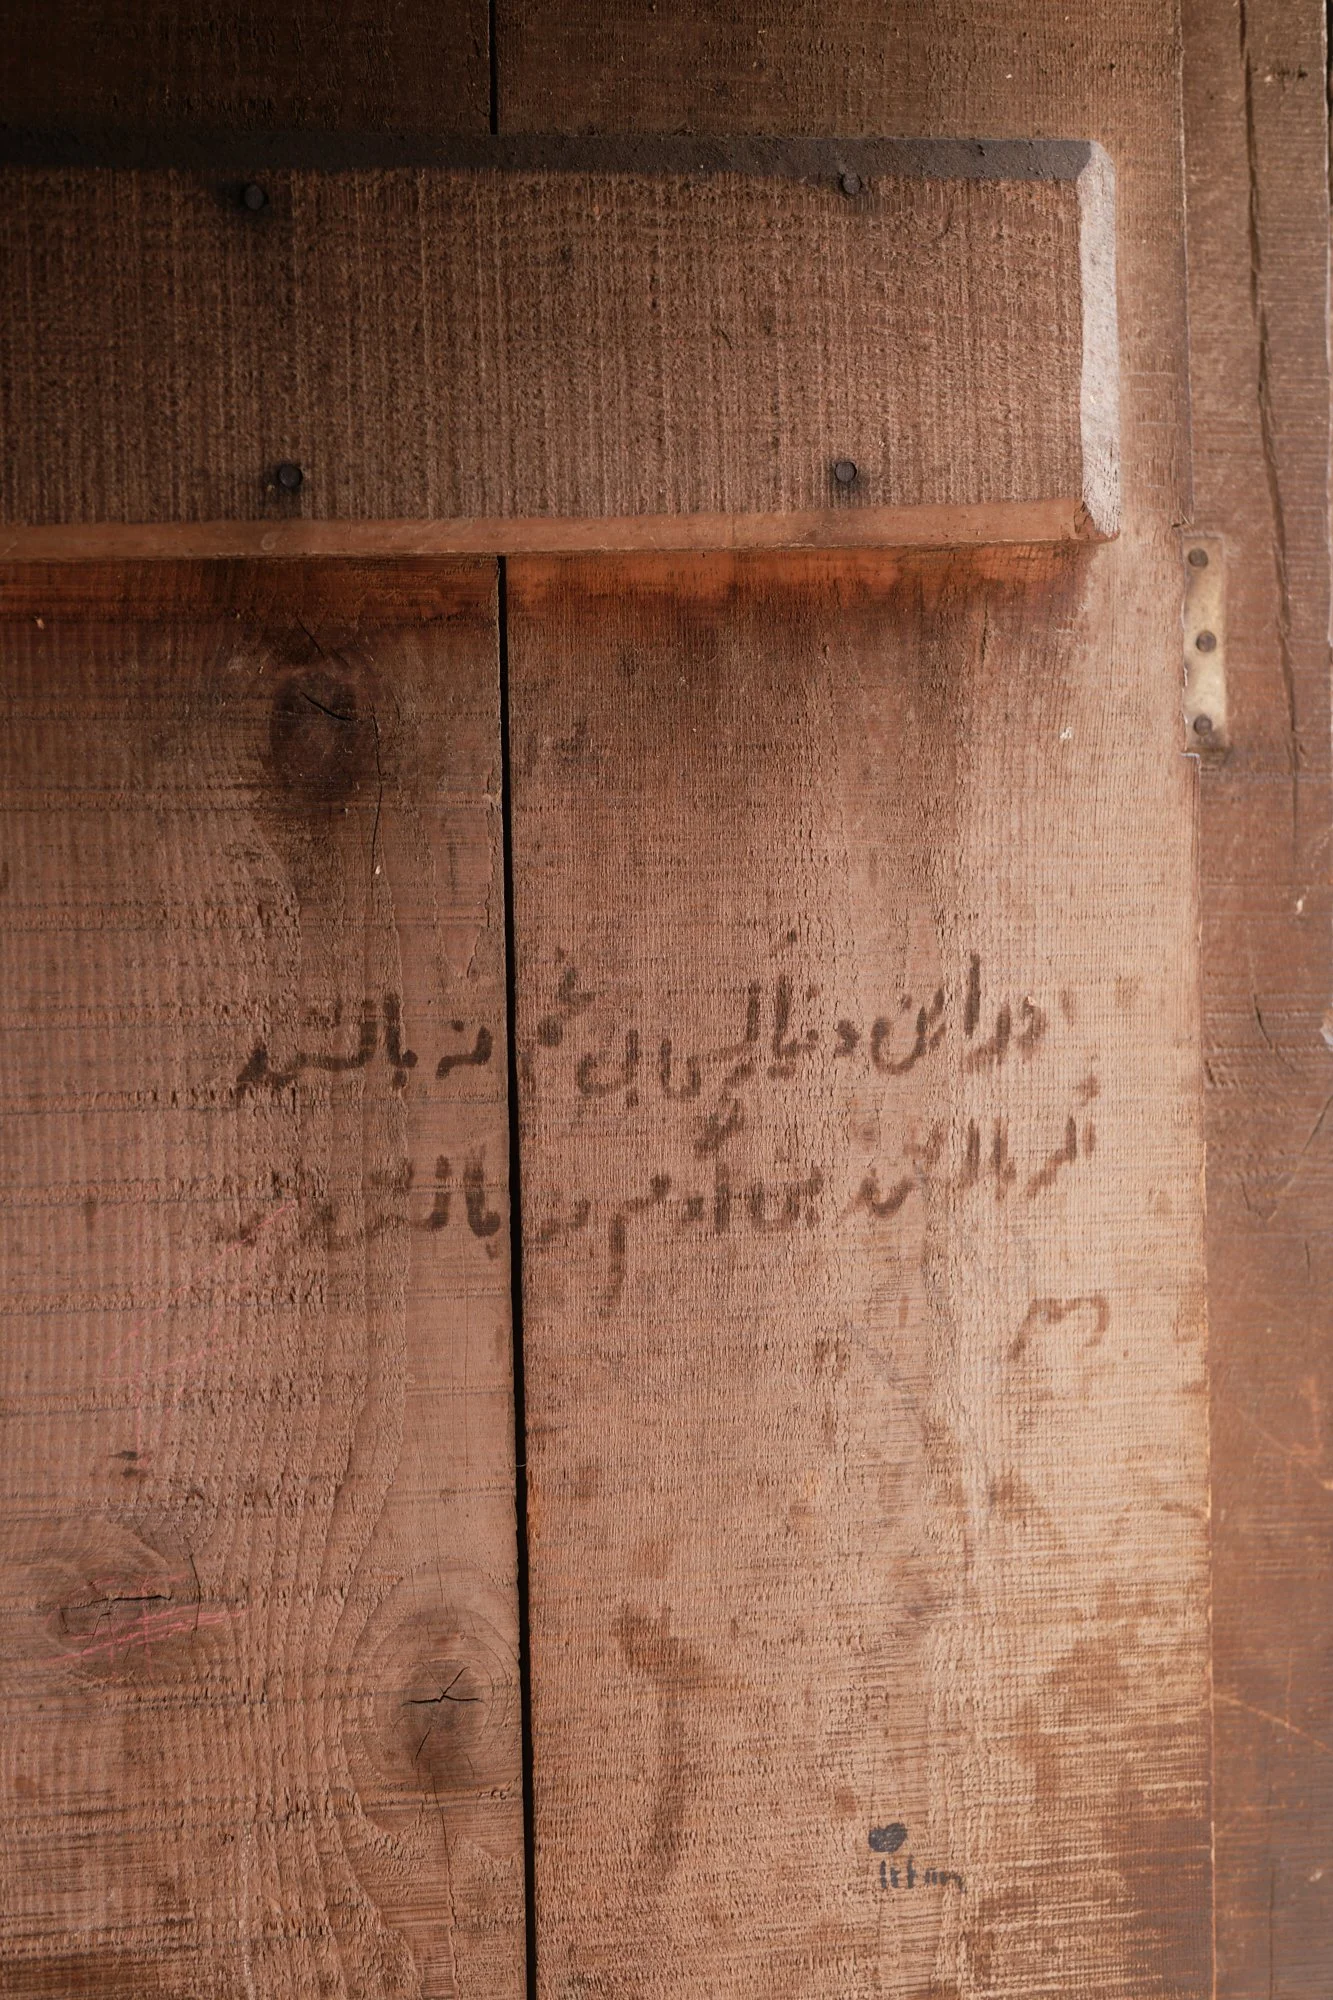 در این دنیا کسی بی غم نه باشد
اگر باشد بنی آدم نه باشد